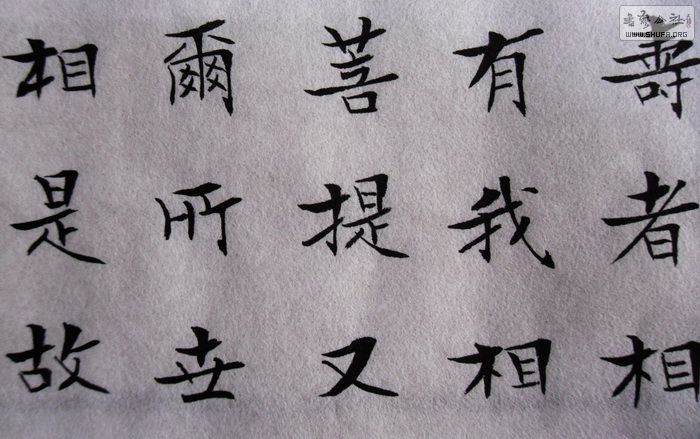 壽者相
有我相
菩提又
爾所世
相是故
書藝公社
WWW.SHUFA.ORG